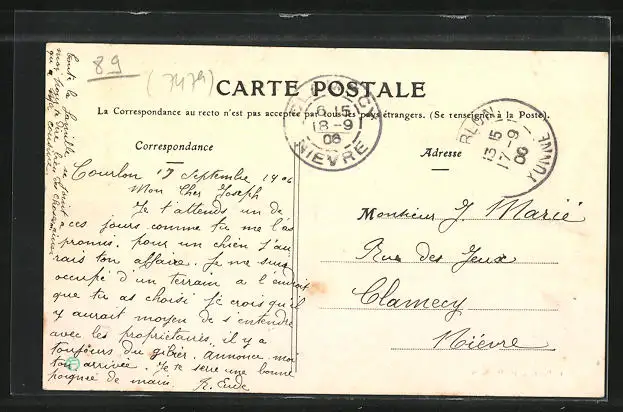 89
(7479)
CARTE POSTALE
La Correspondance au recto n'est pas acceptée par tous les pays étrangers. (Se renseigner à la Poste).
Correspondance
Adresse
6 15
18-9
06
NIEVRE
RLON
15 15
17-9
06
YONNE
Courlon 17 Septembre 1906
Mon Cher Joseph
Je t'attends un de
ces jours comme tu me l'as
promis. pour un chien j'au
rais ton affaire. Je me suis
occupé d'un terrain a l'endroit
que tu as choisi je crois qu'il
y aurait moyen de s'entendre
avec les propriétaires. il y a
toujours du gibier. annonce moi
ton arrivée. Je te serre une bonne
poignée de main. R. Eude
toute la famille se joint a
moi pour te dire bien des choses
Monsieur J. Marié
Rue des Jeux
Clamecy
Nièvre